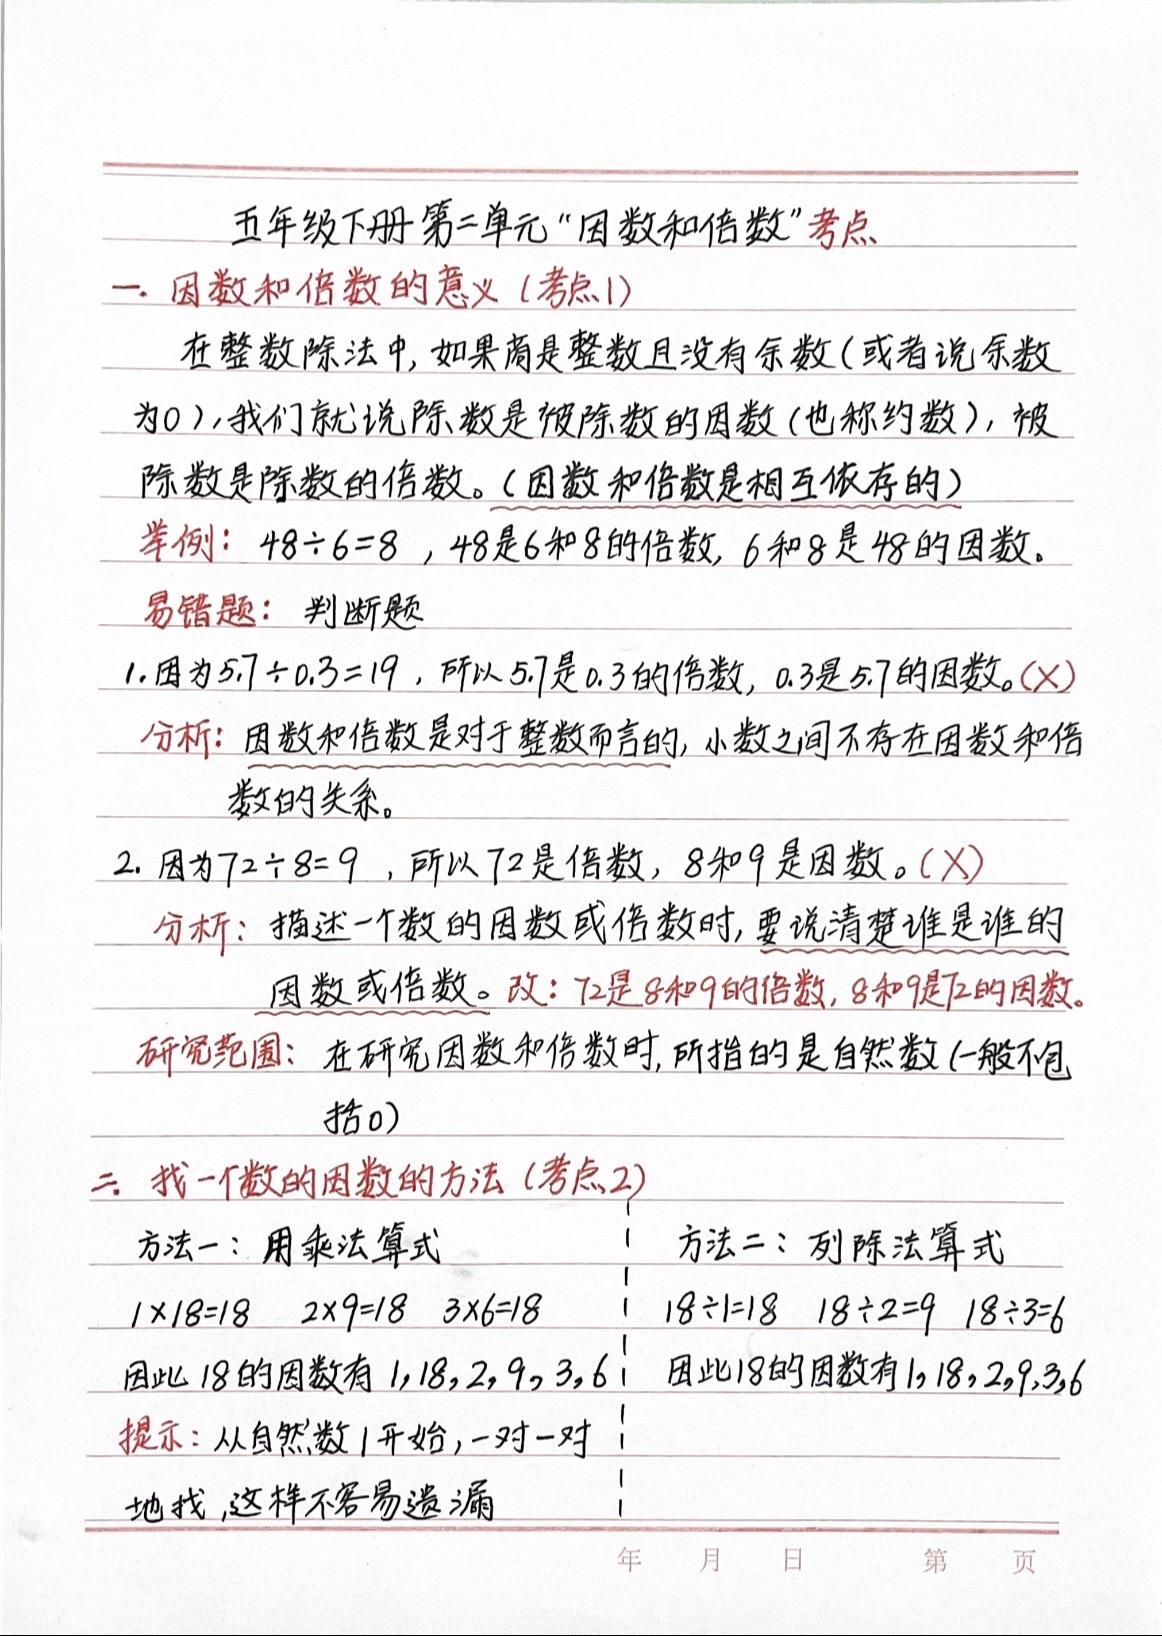 五年级下册第二单元“因数和倍数”考点
一. 因数和倍数的意义(考点1)
在整数除法中,如果商是整数且没有余数(或者说余数
为0),我们就说除数是被除数的因数(也称约数),被
除数是除数的倍数。(因数和倍数是相互依存的)
举例: 48÷6=8 ,48是6和8的倍数, 6和8是48的因数。
易错题: 判断题
1.因为5.7÷0.3=19 , 所以5.7是0.3的倍数, 0.3是5.7的因数。(X)
分析: 因数和倍数是对于整数而言的, 小数之间不存在因数和倍
数的关系。
2. 因为72÷8=9 , 所以72是倍数, 8和9是因数。(X)
分析: 描述一个数的因数或倍数时, 要说清楚谁是谁的
因数或倍数。改: 72是8和9的倍数, 8和9是72的因数。
研究范围: 在研究因数和倍数时,所指的是自然数(一般不包
括0)
二. 找一个数的因数的方法(考点2)
方法一: 用乘法算式
1×18=18 2×9=18 3×6=18
因此18的因数有 1,18,2,9,3,6
提示: 从自然数1开始,一对一对
地找,这样不容易遗漏
方法二: 列除法算式
18÷1=18 18÷2=9 18÷3=6
因此18的因数有1,18,2,9,3,6
年 月 日 第 页